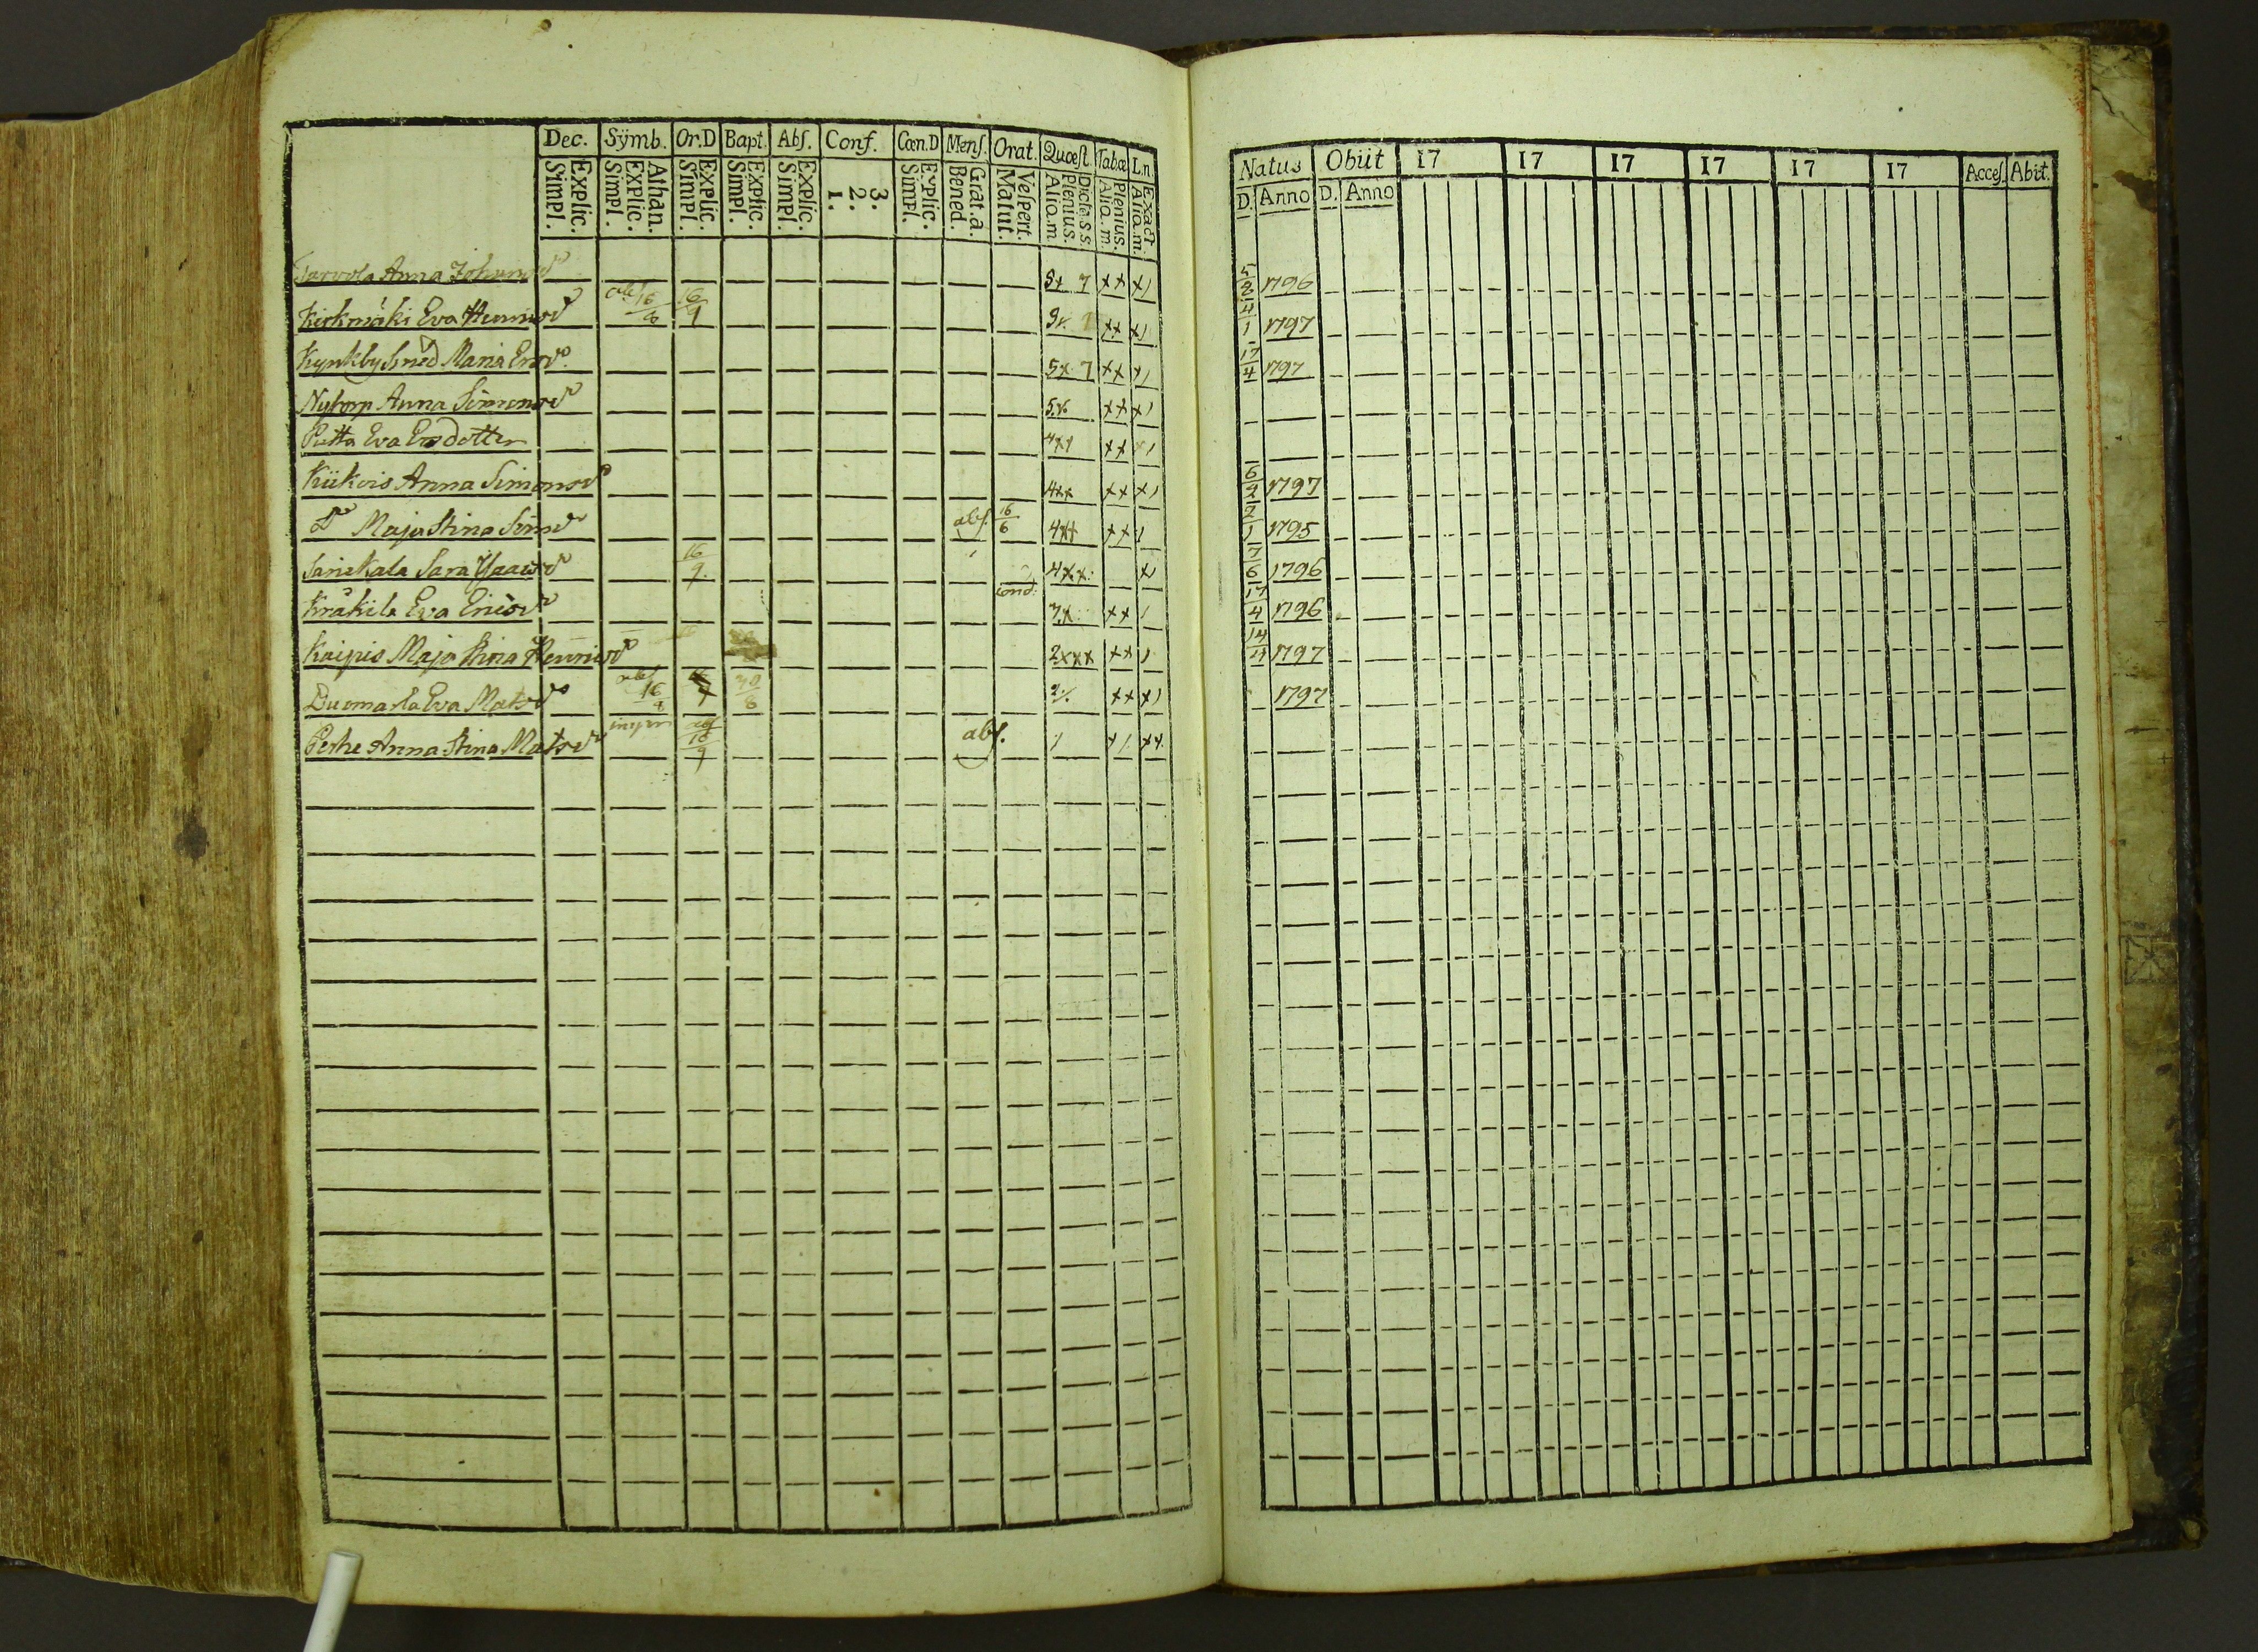 Dec. Sÿmb. Or.D Bapt. Abſ. Conf. Cœn.D Menſ. Orat. Quæſt. Tabæ L.n.
Explic. Simpl. Athan. Explic. Simpl. Explic. Simpl. Explic. Simpl. Explic. Simpl. 3. 2. 1. Explic. Simpl. Grat. a. Bened. Veſpert. Matut. Dicta s.s. Plenius. Aliq.m. Plenius. Aliq.m. Exact. Aliq.m.
Anna Johansd 5x 7 xx x/
Kirkmäki Eva Henricsd abſ 16/8 16/9 xx x/
Kynkby Maria Ersd 5x 7 xx x/
Nytorp Anna Simonsd xx x/
Eva Ersdotter 4xx xx x/
Kiikois Anna Simonsd 4xx xx x/
Do Maja Stina Simsd abſ. 16/6 4xx xx /
Sara Isaacsd 16/9 4xx x/
Kråkila Eva Ericsd cond. 3x xx /
Kaipis Maja Stina Henricsd 2xxx xx /
Duomarla Eva Matsd abſ 16/8 30/8 xx x/
Perhe Anna Stina Matsd abſ 16/9 abſ. x/ xx
Natus Obiit 17 17 17 17 17 17 Acceſ. Abit.
D. Anno D. Anno
5/2 1796
4/1 1797
17/4 1797
6/2 1797
2/1 1795
7/6 1796
17/4 1796
14/4 1797
1797